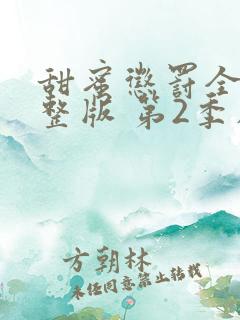 甜蜜懲罰全
整版 第2季
方朝林
未经同意禁止转载